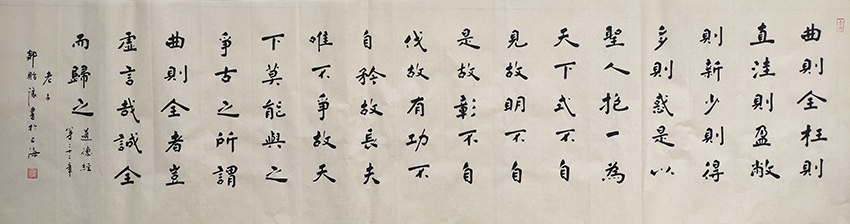 曲則全枉則
直洼則盈敝
則新少則得
多則惑是以
聖人抱一為
天下式不自
見故明不自
是故彰不自
伐故有功不
自矜故長夫
唯不爭故天
下莫能與之
爭古之所謂
曲則全者豈
虛言哉誠全
而歸之
道德經
第二十二章
老子
書於上海